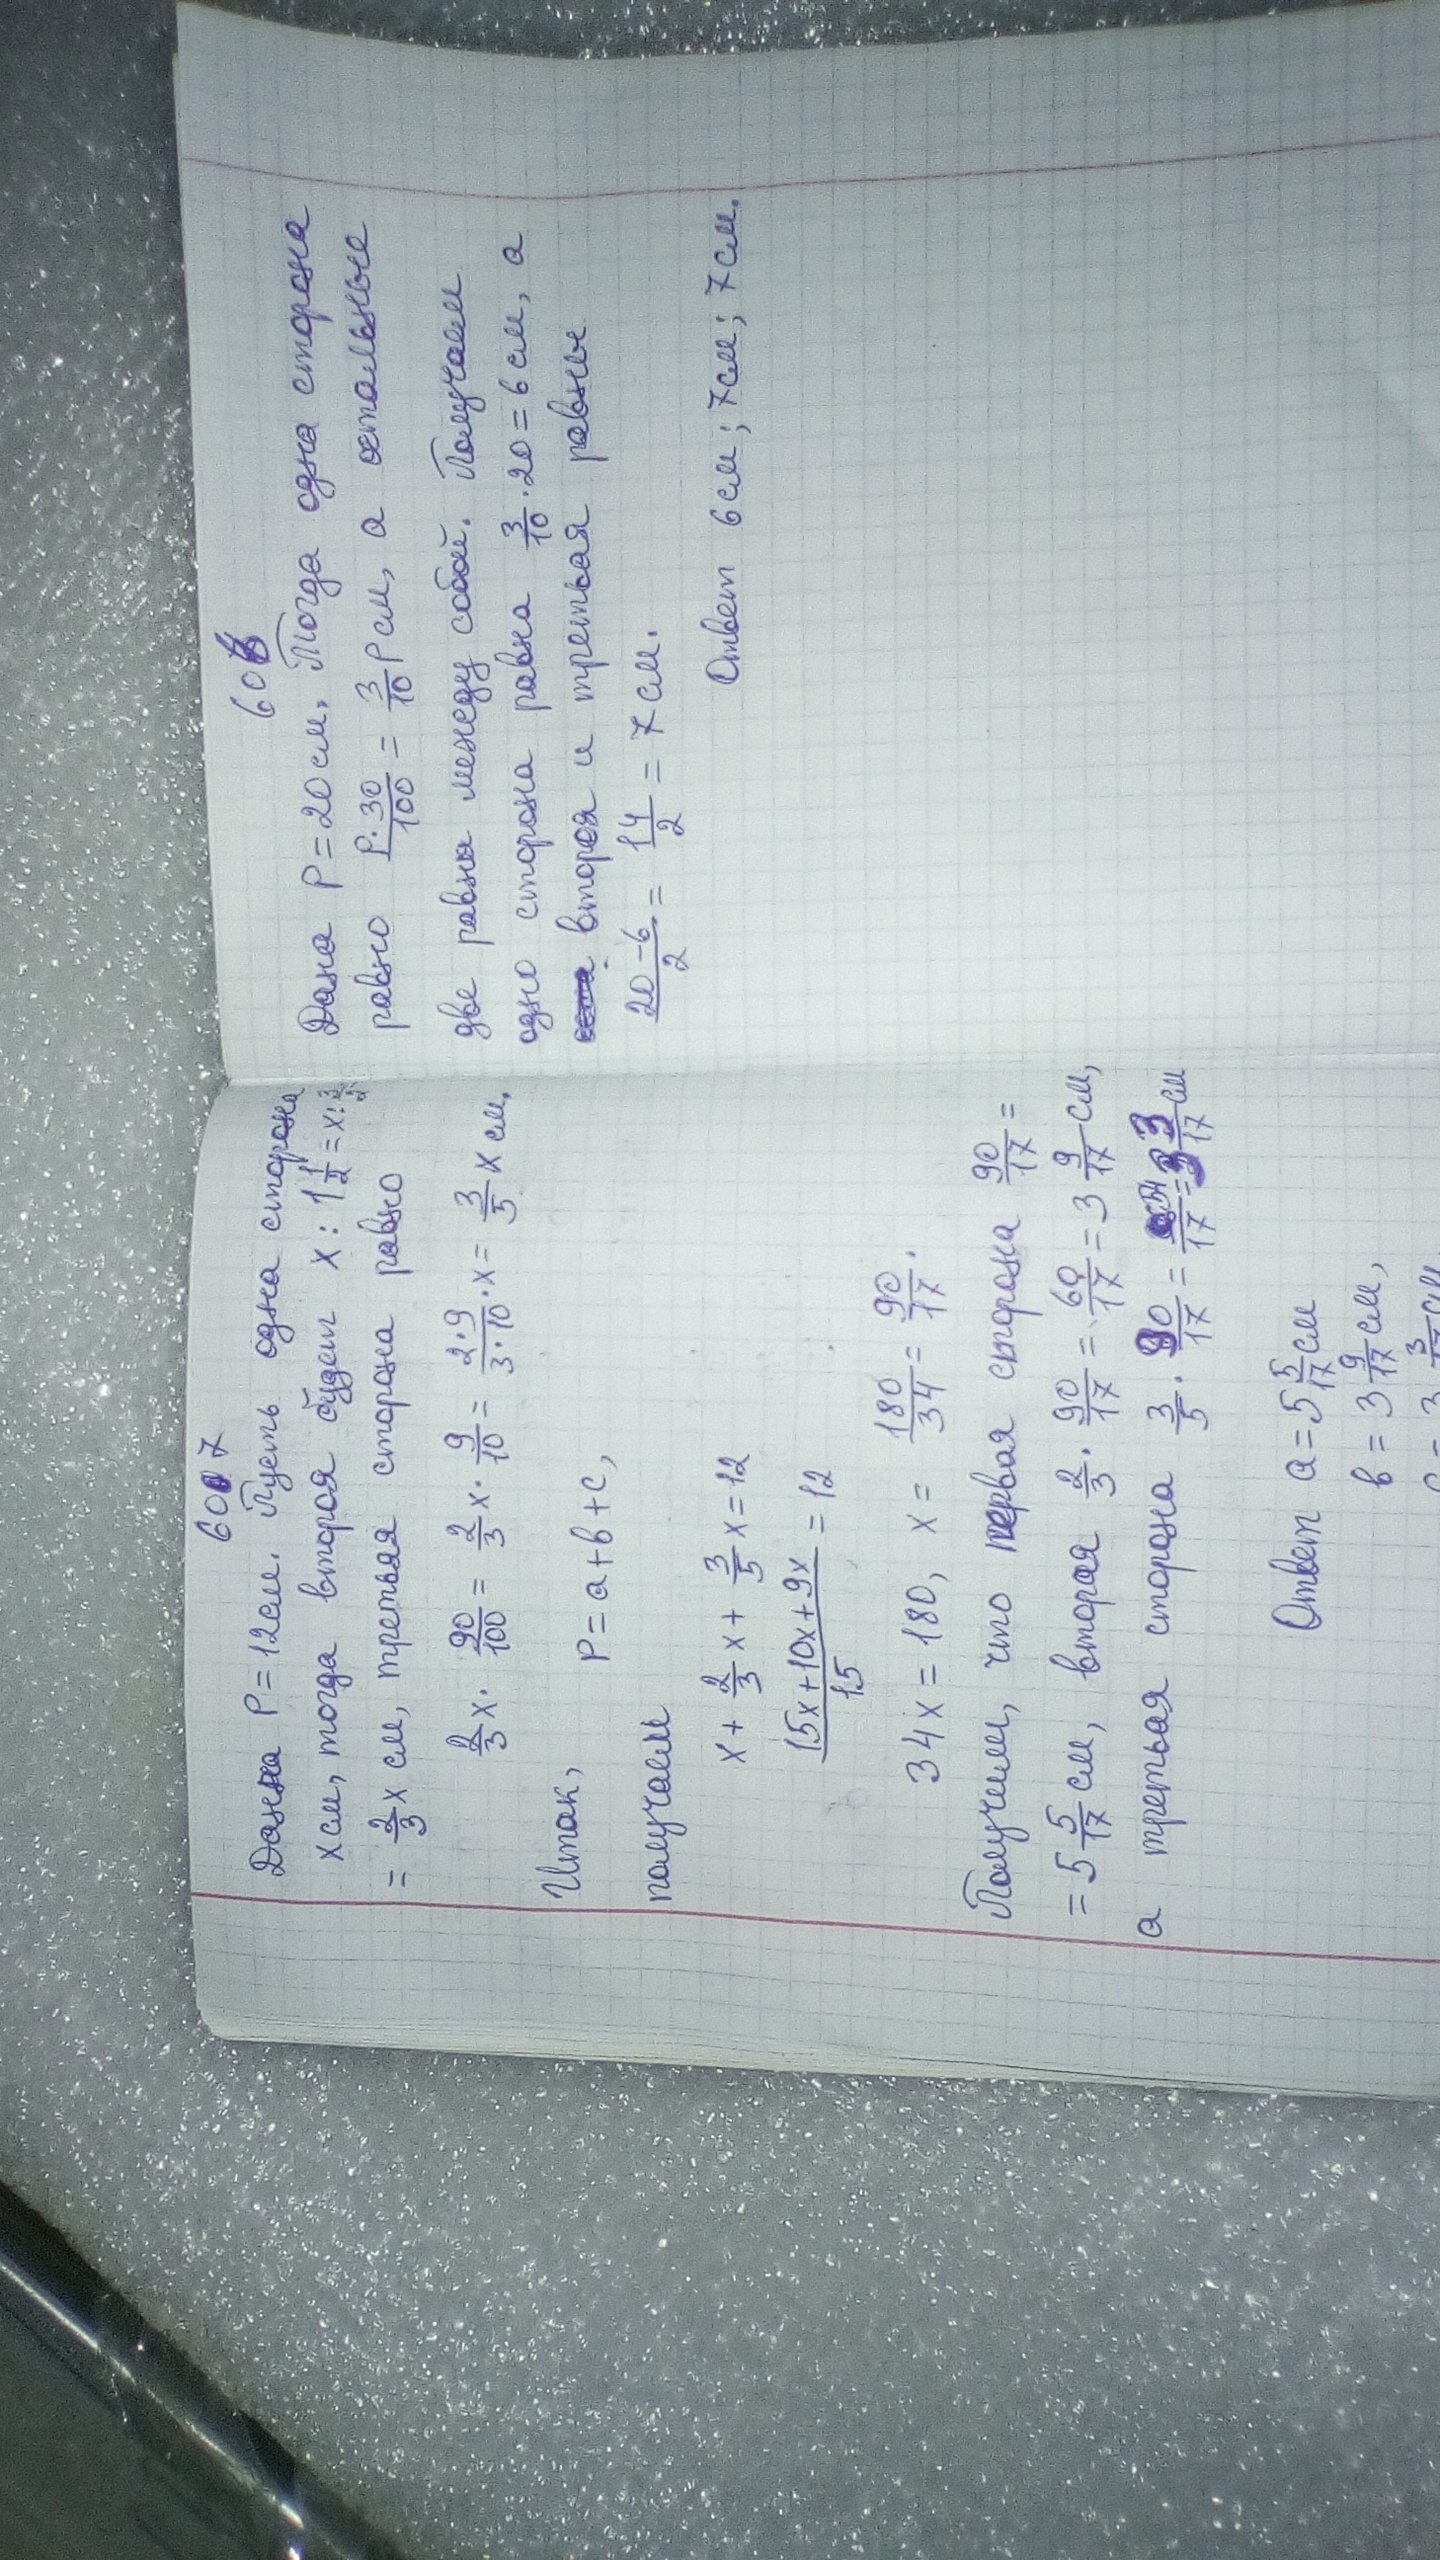 607
Данна P=12см. Пусть одна сторона
x см, тогда вторая будет x : 1 1/2 = x : 3/2
= 2/3 x см, третья сторона равно
2/3 x · 90/100 = 2/3 x · 9/10 = 2·9/3·10 · x = 3/5 x см.
Итак, P = a+b+c,
получаем
x + 2/3 x + 3/5 x = 12
15x+10x+9x/15 = 12
34x = 180, x = 180/34 = 90/17.
Получим, что первая сторона 90/17 =
= 5 5/17 см, вторая 2/3 · 90/17 = 60/17 = 3 9/17 см,
а третья сторона 3/5 · 90/17 = 54/17 = 3 3/17 см
Ответ a = 5 5/17 см
b = 3 9/17 см,
c = 3 3/17 см
Дана P = 20 см. Тогда одна сторона
равно P·30/100 = 3/10 P см, а остальные
две равны между собой. Получаем
одно сторона равна 3/10 · 20 = 6 см, а
вторая и третья равны
20-6/2 = 14/2 = 7 см.
Ответ 6 см; 7 см; 7 см.